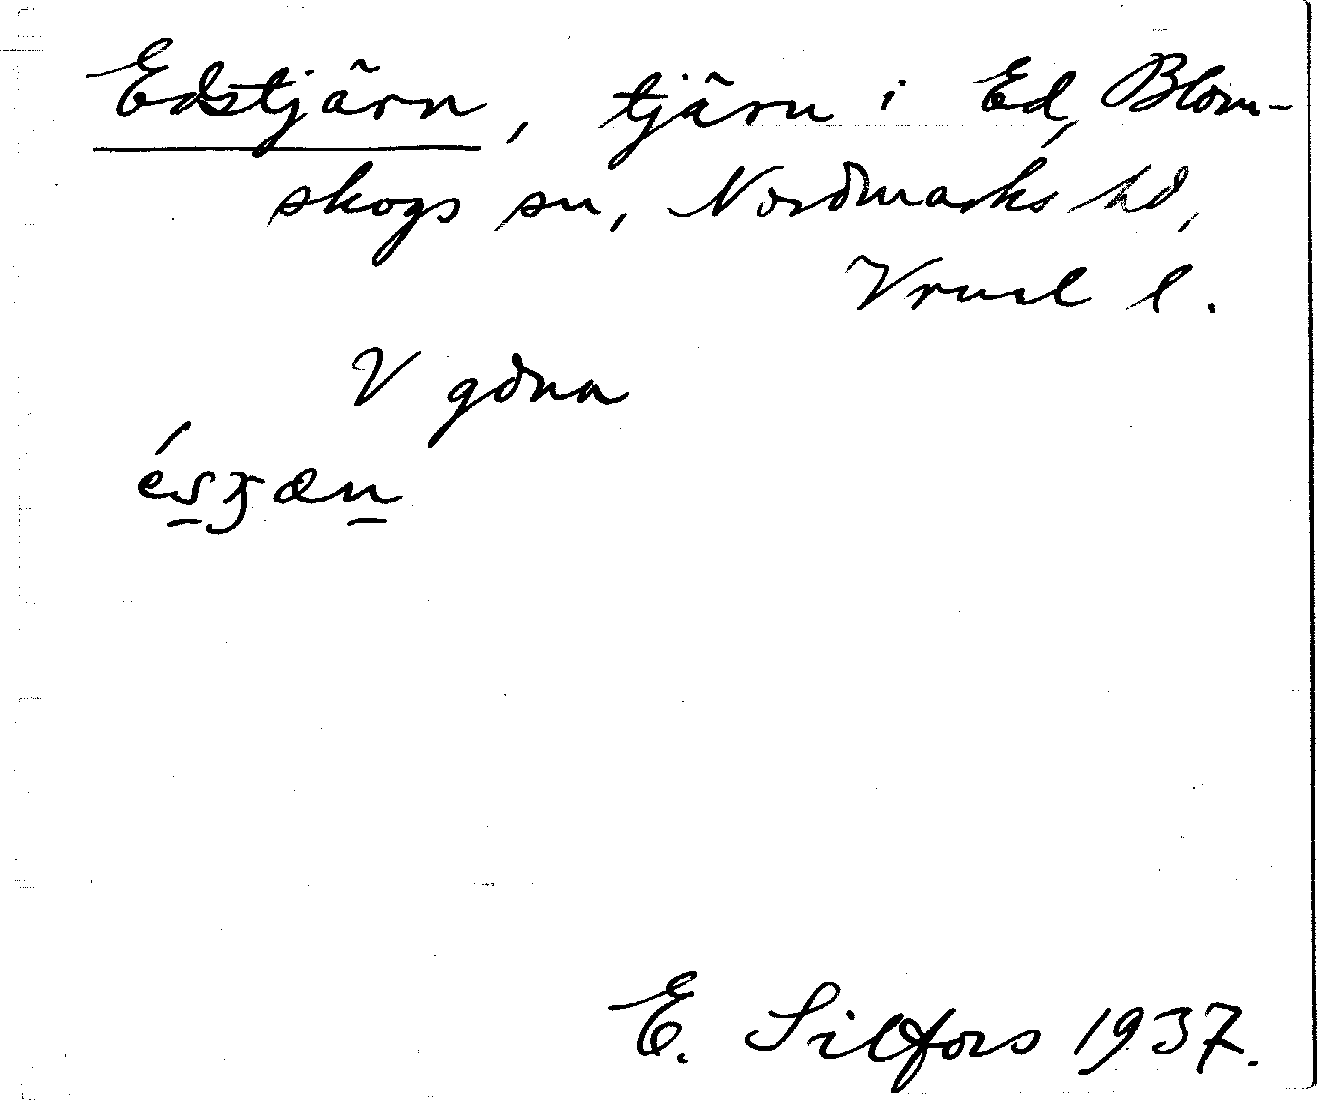 Edstjärn, tjärn i Ed, Blom-
skogs sn, Nordmarks hd,
Vrml l.
V gdna
E. Silfors 1937.